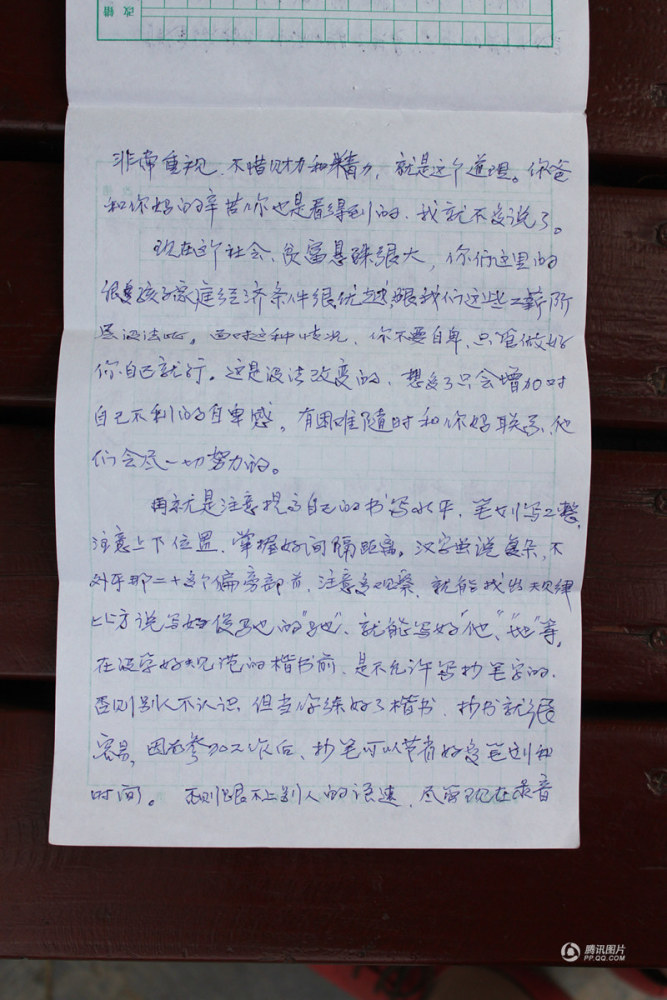 改错
非常重视，不惜财力和精力，就是这个道理。你爸
和你妈的辛苦你也是看得到的，我就不多说了。
现在这个社会，贫富悬殊很大，你们这里的
很多孩子家庭经济条件很优越，跟我们这些工薪阶
层没法比。面对这种情况，你不要自卑，只管做好
你自己就行。这是没法改变的，想多了只会增加对
自己不利的自卑感。有困难随时和你妈联系，他
们会尽一切努力的。
再就是注意提高自己的书写水平，笔划写工整，
注意上下位置，掌握好间隔距离。汉字虽说复杂，不
外乎那二十多个偏旁部首，注意多观察，就能找出规律
比方说写好俊马也的“驰”，就能写好“他”、“地”等，
在没学好规范的楷书前，是不允许写抄笔字的，
否则别人不认识，但当你练好了楷书，抄书就很
容易，因为参加工作后，抄笔可以节省好多笔划和
时间。否则跟不上别人的语速，尽管现在录音
腾讯图片
PP.QQ.COM